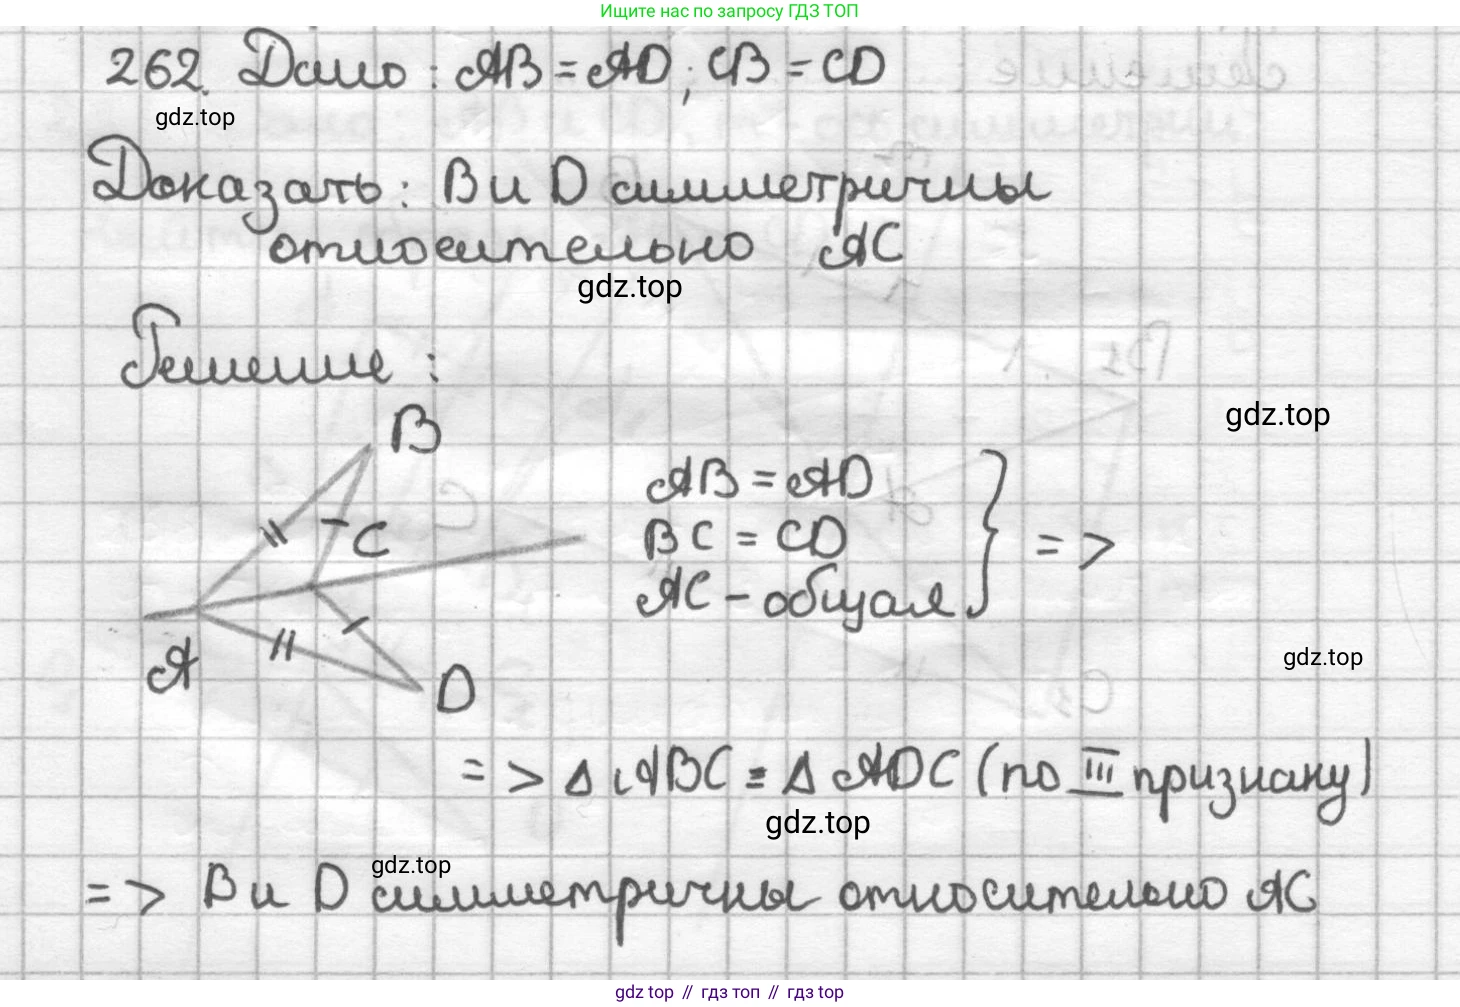 Ищите нас по запросу ГДЗ ТОП
262. Дано: AB = AD; CB = CD
gdz.top
Доказать: B и D симметричны
относительно AC
gdz.top
Решение:
B
gdz.top
AB = AD
C
BC = CD
=>
AC - общая
gdz.top
A
D
=> Δ ABC = Δ ADC (по III признаку)
gdz.top
gdz.top
=> B и D симметричны относительно AC
gdz top // гдз топ // гдз top